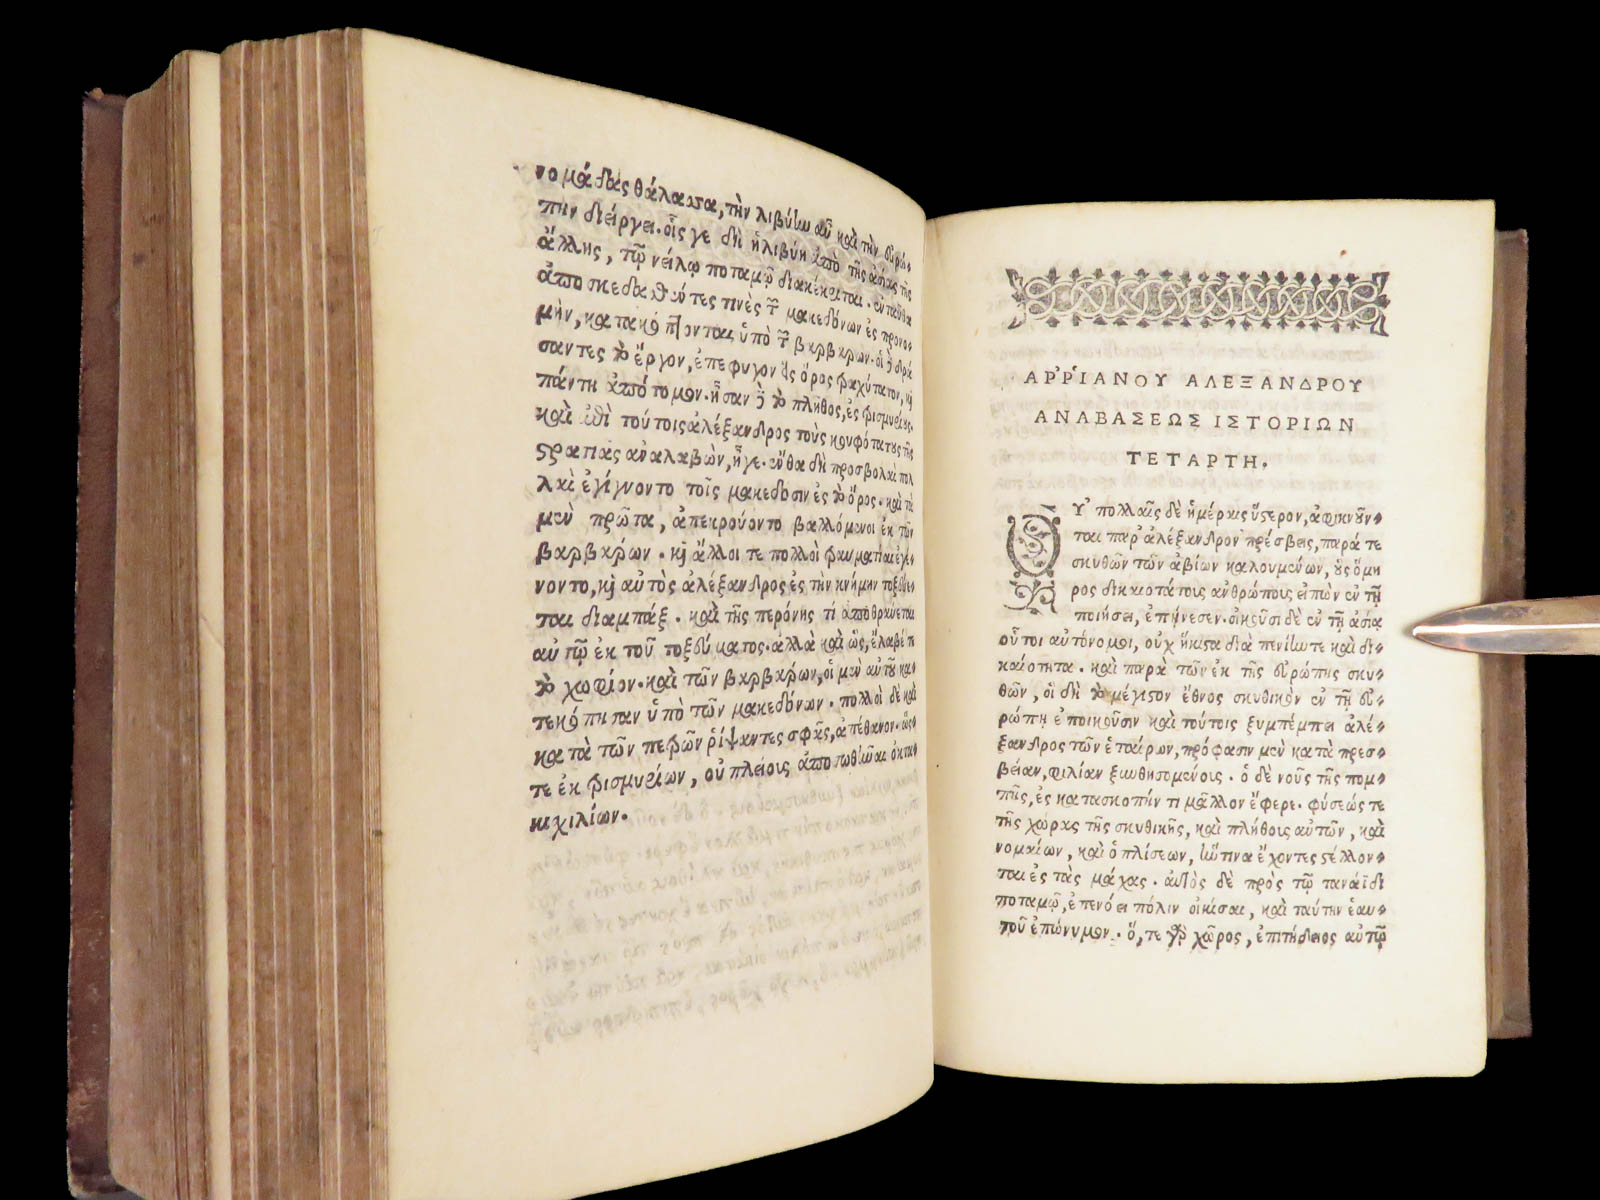 νομάδας θάλασσα, τὴν λιβύην αὖ καὶ τὴν εὐρώ-
πην διείργει. οἷς γε δὴ ἡ λιβύη ἀπὸ τῆς ἀσίας τῆς
ἄλλης, τῷ νείλῳ ποταμῷ διακέκριται. ἐνταῦθα
ἀποσκεδασθέντες τινὲς τῶν μακεδόνων ἐς προνο-
μὴν, κατακόπτονται ὑπὸ τῶν βαρβάρων. οἱ δὲ δρά
σαντες τὸ ἔργον, ἐπεφυγον εἰς ὄρος τραχύτατον, καὶ
πάντη ἀπότομον. ἦσαν δὲ τὸ πλῆθος, ἐς τρισμυρίους.
καὶ ἐπὶ τούτοις ἀλέξανδρος τοὺς κουφότατους τῆς
στρατιᾶς ἀναλαβὼν, ἦγε. ἔνθα δὴ προσβολαὶ πολ
λαὶ ἐγίγνοντο τοῖς μακεδοσιν ἐς τὸ ὄρος. καὶ τὰ
μὲν πρῶτα, ἀπεκρούοντο βαλλόμενοι ἐκ τῶν
βαρβάρων. καὶ ἄλλοι τε πολλοὶ τραυματίαι ἐγέ-
νοντο, καὶ αὐτὸς ἀλέξανδρος ἐς τὴν κνήμην τοξεύε
ται διαμπάξ. καὶ τῆς περόνης τὶ ἀποθραύεται
αὐτῷ ἐκ τοῦ τοξεύματος. ἀλλὰ καὶ ὣς, ἔλαβέ τε
τὸ χωρίον. καὶ τῶν βαρβάρων, οἱ μὲν αὐτοῦ κα-
τεκόπησαν ὑπὸ τῶν μακεδόνων. πολλοὶ δὲ καὶ
κατὰ τῶν πετρῶν ῥίψαντες σφᾶς, ἀπέθανον. ὥς-
τε ἐκ τρισμυρίων, οὐ πλείους ἀποσωθῆναι ὀκτα-
κισχιλίων.
ΑΡΡΙΑΝΟΥ ΑΛΕΞΑΝΔΡΟΥ
ΑΝΑΒΑΣΕΩΣ ΙΣΤΟΡΙΩΝ
ΤΕΤΑΡΤΗ.
ΟΥ πολλαῖς δὲ ἡμέραις ὕστερον, ἀφικνοῦν-
ται παρ' ἀλέξανδρον πρέσβεις, παρά τε
σκυθῶν τῶν ἀβίων καλουμένων, οὓς ὅμη
ρος δικαιοτάτους ἀνθρώπους εἰπὼν ἐν τῇ
ποιήσει, ἐπῄνεσεν. οἰκοῦσι δὲ ἐν τῇ ἀσίᾳ
οὗτοι αὐτόνομοι, οὐχ ἥκιστα διὰ πενίαν τε καὶ δι-
καιότητα. καὶ παρὰ τῶν ἐκ τῆς εὐρώπης σκυ-
θῶν, οἳ δὴ τὸ μέγιστον ἔθνος σκυθικὸν ἐν τῇ εὐ-
ρώπῃ ἐποικοῦσιν καὶ τούτοις ξυμπέμπει ἀλέ-
ξανδρος τῶν ἑταίρων, πρόφασιν μὲν κατὰ πρεσ-
βείαν, φιλίαν ξυνθησομένους. ὁ δὲ νοῦς τῆς πομ-
πῆς, ἐς κατασκοπήν τι μᾶλλον ἔφερε. φύσεώς τε
τῆς χώρας τῆς σκυθικῆς, καὶ πλήθους αὐτῶν, καὶ
νομαίων, καὶ ὁπλίσεων, ἥντινα ἔχοντες στέλλον-
ται ἐς τὰς μάχας. αὐτὸς δὲ πρὸς τῷ τανάϊδι
ποταμῷ, ἐπενόει πόλιν οἰκίσαι, καὶ ταύτην ἑαυ-
τοῦ ἐπώνυμον. ὅ, τε γὰρ χῶρος, ἐπιτήδειος αὐτῷ